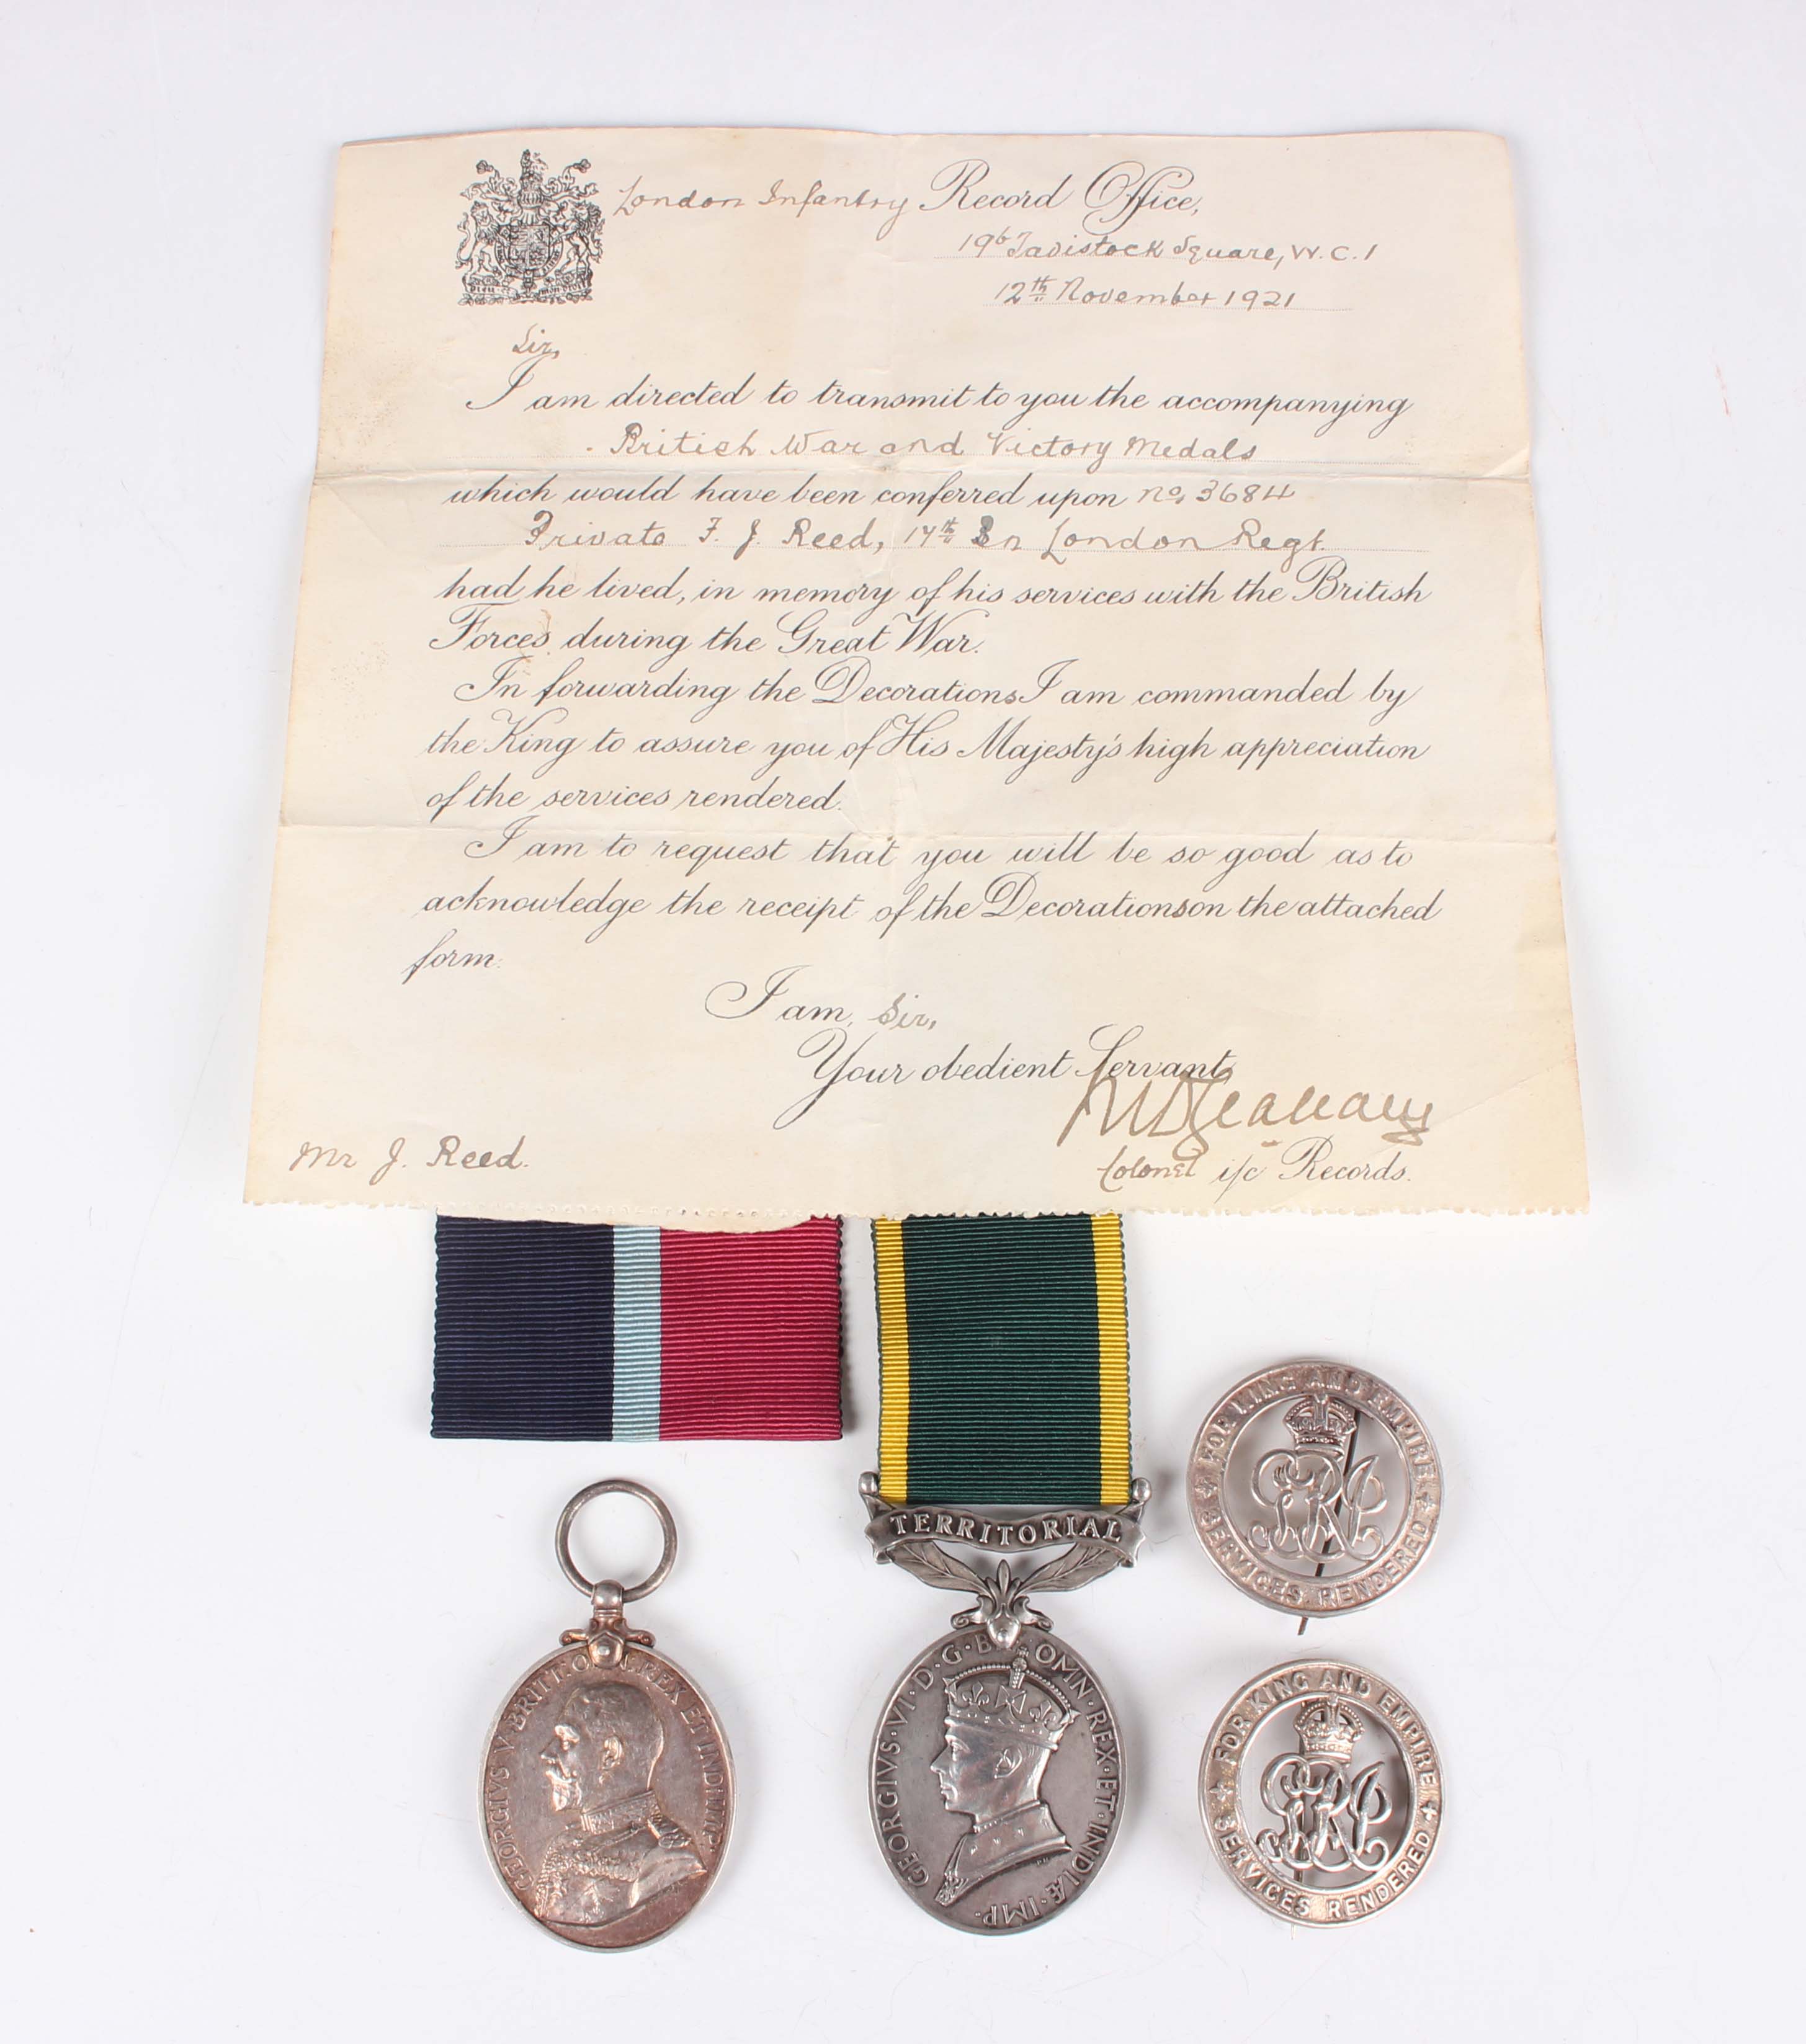 London Infantry Record Office,
19b Tavistock Square, W.C.1
12th November 1921
Sir,
I am directed to transmit to you the accompanying
British War and Victory Medals
which would have been conferred upon No. 3684
Private F. J. Reed, 17th Bn London Regt.
had he lived, in memory of his services with the British
Forces during the Great War.
In forwarding the Decorations I am commanded by
the King to assure you of His Majesty's high appreciation
of the services rendered.
I am to request that you will be so good as to
acknowledge the receipt of the Decorations on the attached
form.
I am, Sir,
Your obedient Servant
Colonel i/c Records.
Mr J. Reed.
TERRITORIAL
GEORGIVS V BRITT: REX ET IND: IMP:
GEORGIVS·VI·D·G·BR OMN·REX·ET·INDIÆ·IMP.
FOR KING AND EMPIRE
SERVICES RENDERED
FOR KING AND EMPIRE
SERVICES RENDERED